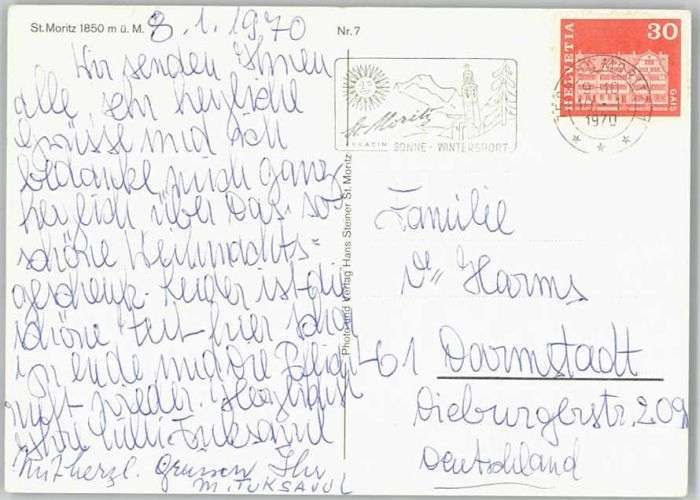 St. Moritz 1850 m ü. M.
Nr. 7
8.1.1970
Wir senden Ihnen
alle sehr herzliche
Grüsse und ich
bedanke mich ganz
herzlich über das so
schöne Weihnachts=
geschenk. Leider ist die
schöne Zeit hier schon
zu ende und die Pflicht
ruft wieder. Herzlichst
Ihre
Mit herzl. Grüssen Ihr
M. TUKSAVUL
Photo und Verlag Hans Steiner St. Moritz
HELVETIA
30
1970
St. Moritz
SONNE - WINTERSPORT
Familie
Dr. Harms
61 Darmstadt
Dieburgerstr. 209
Deutschland